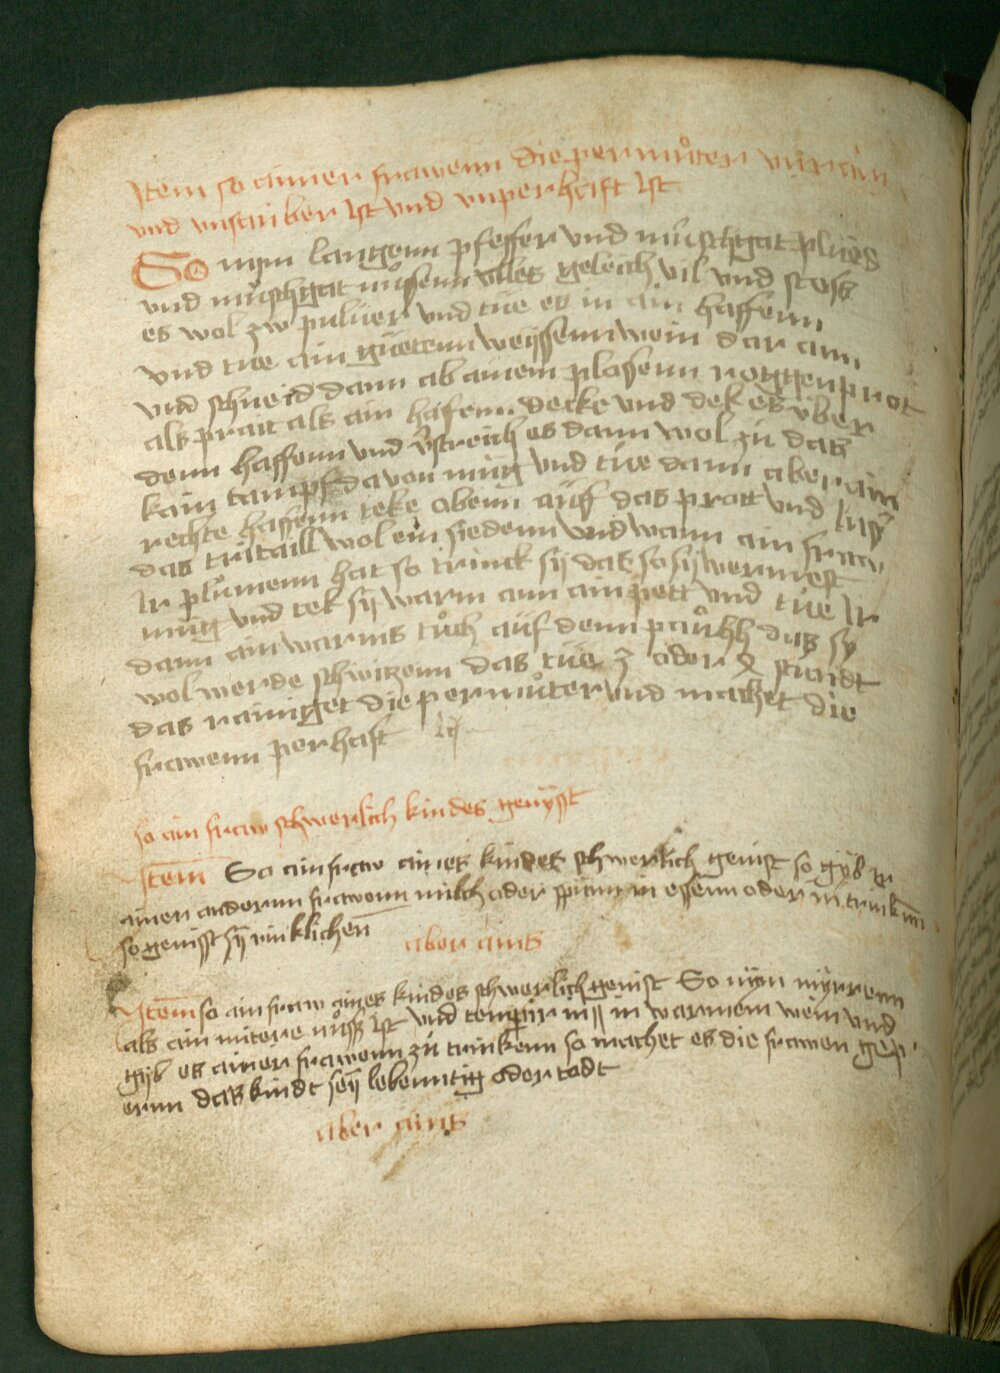 Item so ainer frawenn die permuͦter vnrain
vnd vnsauber ist vnd vnperhaft ist
So nym langenn pfeffer vnd muschgat plües
vnd muschgat nussenn alles geleich vil vnd stoss
es wol zw puluer vnd tüe es in ain haffenn
vnd tue ain güetenn weyssenn wein dar ann
vnd schneid dann ab ainem plossenn roggenprot
als prait als ain hafenn decke vnd dek es vber
denn haffenn vnd v̄streich es dann wol zü das
kain tampf dauon müg vnd tüe dann aber ain
rechte haffenn teke obenn auf das prott vnd lass
das tritaill wol ein siedenn vnd wann ain fraw
Ir pluͦmenn hat so trinck sy das so sy wermest
müg vnd lek sy warm ann ain pett vnd tüe Ir
dann ain warms tuͦch auf denn pauͦkh das sy
wol werde schwitzenn das tüe 3 oder 4 stundt
das rainiget die permuͦter vnd machet die
frawenn perhaft
so ain fraw schwerlich kindes genyst
Item So ain fraw aines kindes schwerlich genist so gyb ir
ainer andernn frawenn milch oder spunn in essenn oder in trinkenn
so genisst sy rinklichenn
aber ains
Item so ain fraw aines kindes schwerlich genist So nym myrrenn
als ain mitere nuss ist vnd temperir in || in warmem wein vnd
gyb es ainer frawenn zü trinkenn so machet es die frawen gep
ernn das kindt sey lebenntig oder todt
aber ains